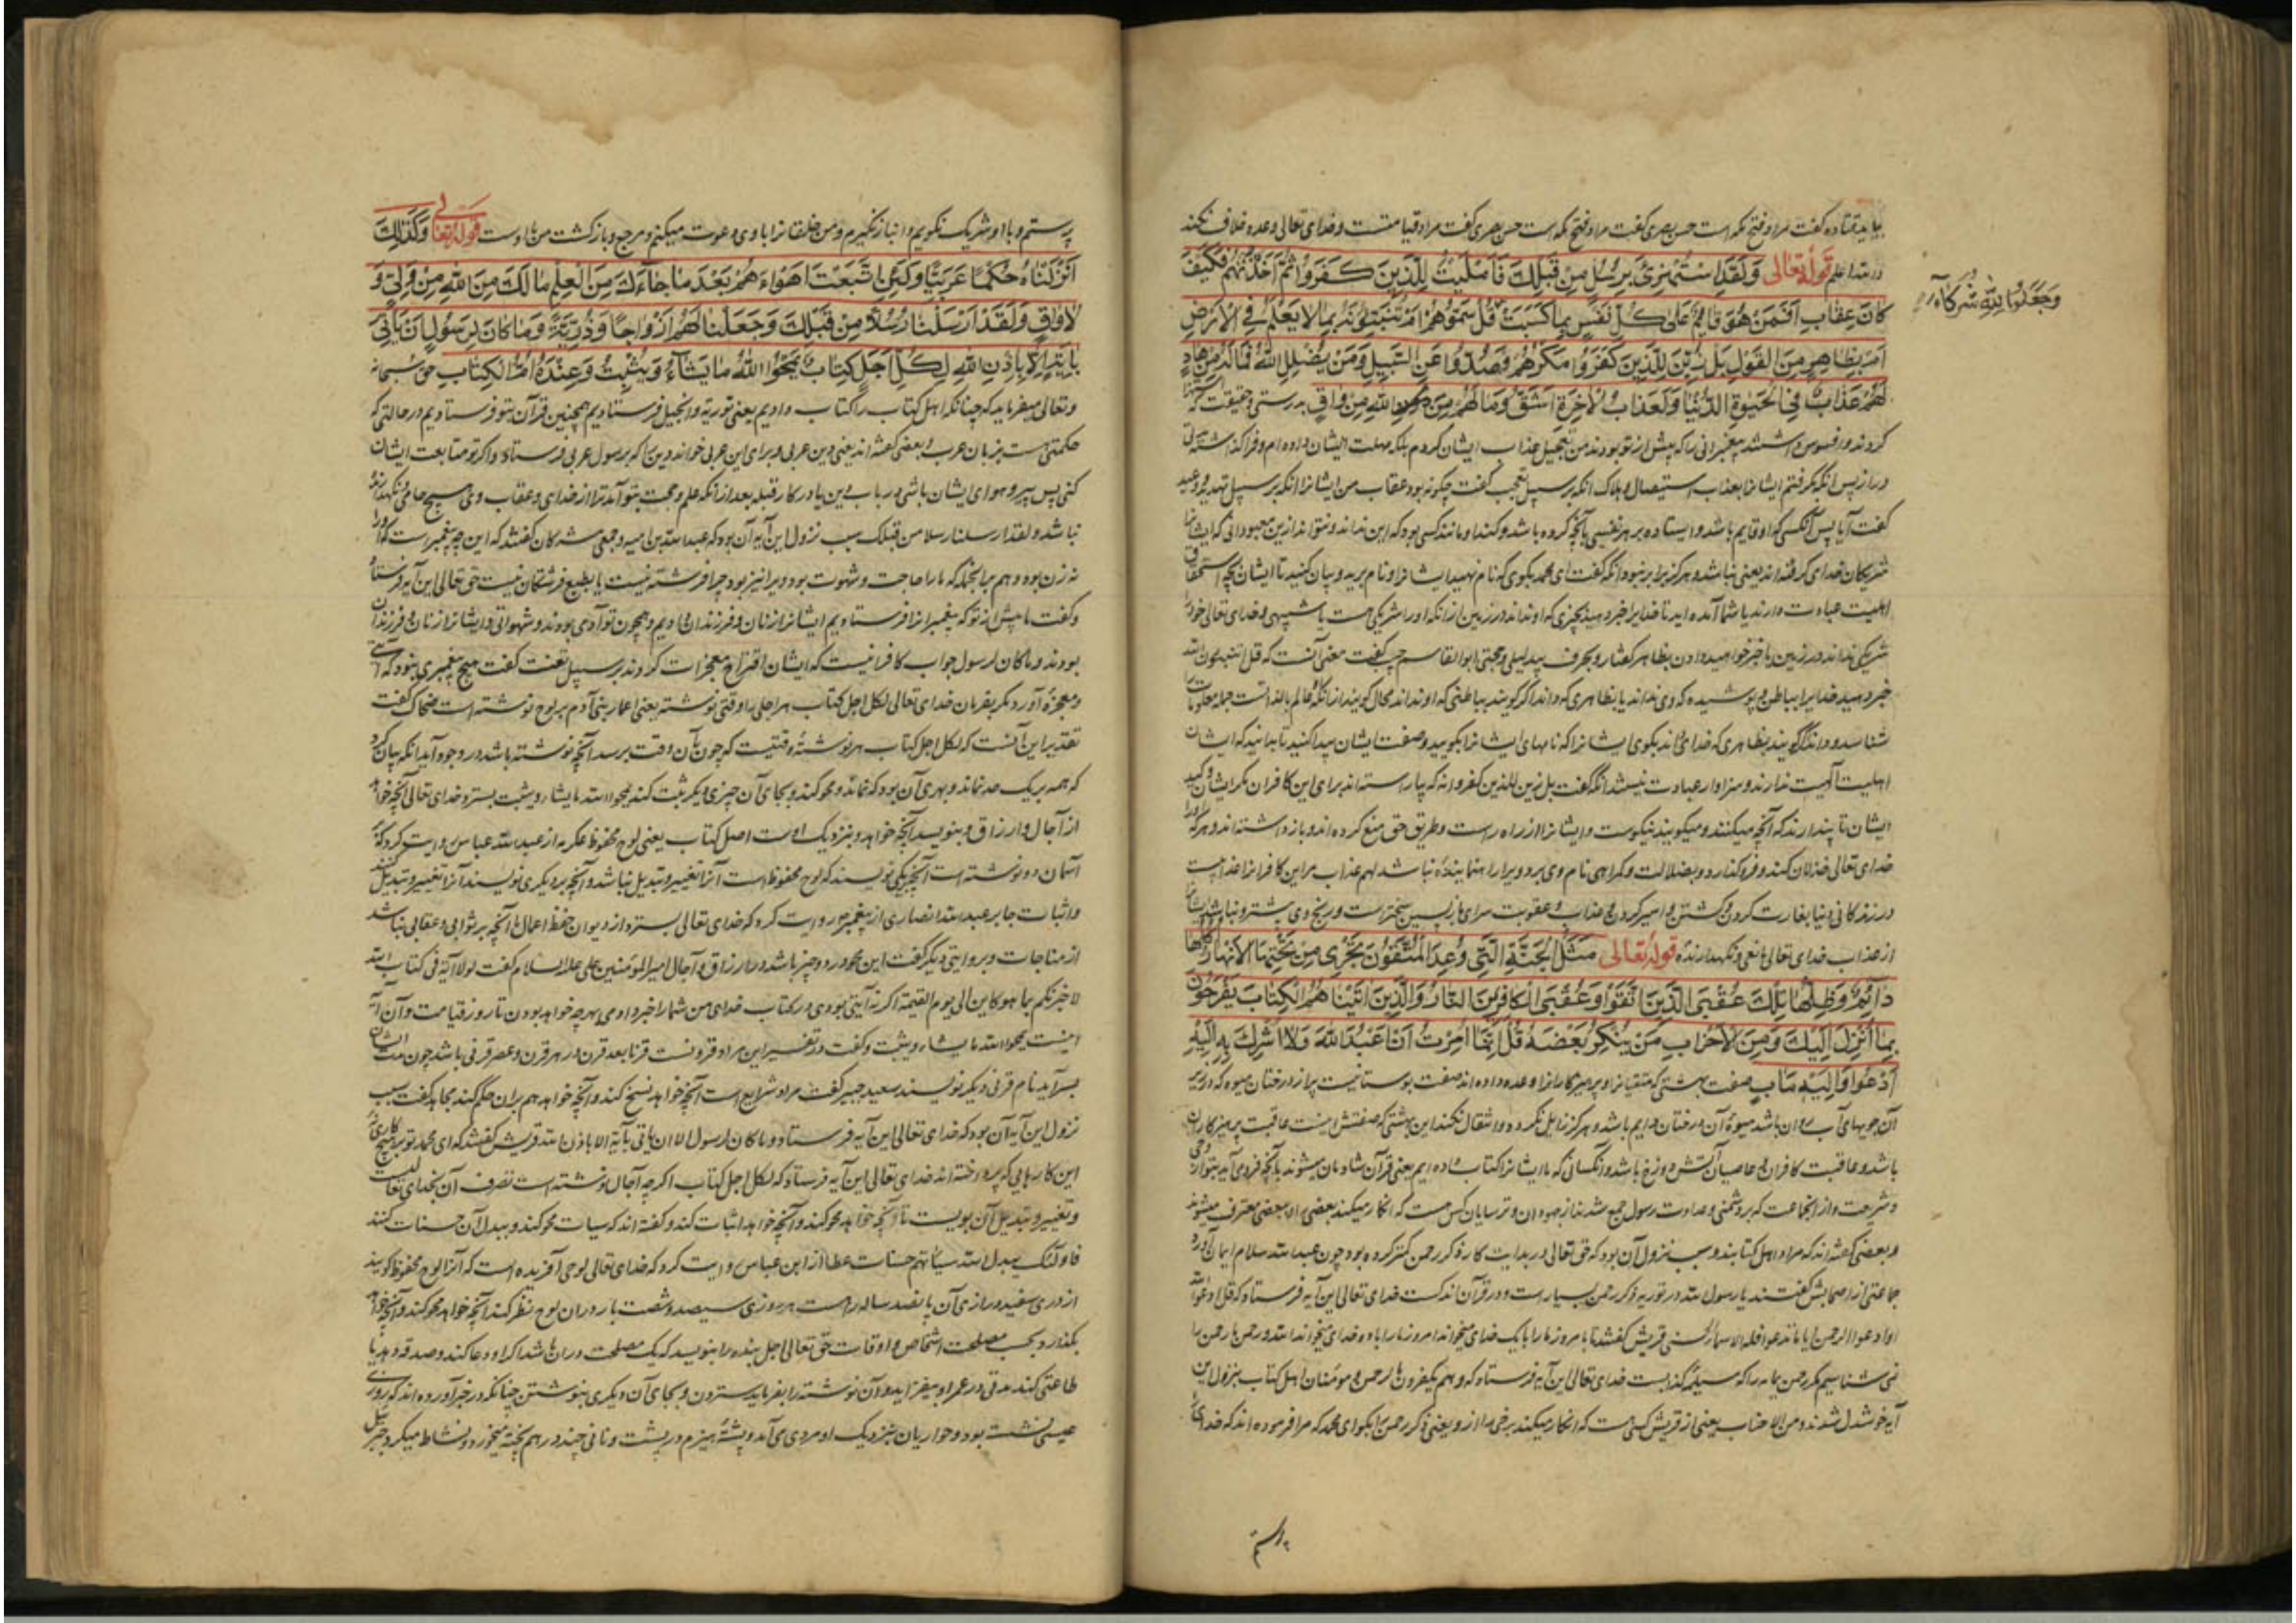 بیاید قتاده گفت مراد فتح مکه است حسن بصری گفت مراد فتح مکه است حسن بصری گفت مراد قیامتست و خدای تعالی وعده خلاف نکند
و الله اعلم قوله تعالی وَلَقَدِ اسْتُهْزِئَ بِرُسُلٍ مِنْ قَبْلِكَ فَأَمْلَيْتُ لِلَّذِينَ كَفَرُوا ثُمَّ أَخَذْتُهُمْ فَكَيْفَ
كَانَ عِقَابِ أَفَمَنْ هُوَ قَائِمٌ عَلَىٰ كُلِّ نَفْسٍ بِمَا كَسَبَتْ قُلْ سَمُّوهُمْ أَمْ تُنَبِّئُونَهُ بِمَا لَا يَعْلَمُ فِي الْأَرْضِ
وَجَعَلُوا لِلَّهِ شُرَكَاءَ
أَمْ بِظَاهِرٍ مِنَ الْقَوْلِ بَلْ زُيِّنَ لِلَّذِينَ كَفَرُوا مَكْرُهُمْ وَصُدُّوا عَنِ السَّبِيلِ وَمَنْ يُضْلِلِ اللَّهُ فَمَا لَهُ مِنْ هَادٍ
لَهُمْ عَذَابٌ فِي الْحَيَوةِ الدُّنْيَا وَلَعَذَابُ الْآخِرَةِ أَشَقُّ وَمَا لَهُمْ مِنَ اللَّهِ مِنْ وَاقٍ بدرستی و حقیقت که
کردند و افسوس داشتند پیغمبرانی را که پیش از تو بودند من تعجیل عذاب ایشان نکردم بلکه مهلت ایشان داده ام و فرا گذاشته
در از پس انکه گرفتم ایشانرا بعذاب استیصال و هلاک انکه بر سبیل تعجب گفت چگونه بود عقاب من ایشانرا انکه بر سبیل تهدید و وعید
گفت آیا پس آنکسی که او قایم باشد و ایستاده بر هر نفسی بآنچه کرده باشد و کند او مانند کسی بود که این نداند و نتواند از این معبودانی که ایشان
شریکان خدای گرفته اند یعنی نباشد و هرگز برابر نبود انکه گفت ای محمد بگوی که نام نهید ایشانرا و نام برید و بیان کنید تا ایشان بچه استحقاق
اهلیت عبادت دارند یا شما آمده اید تا خدایرا خبر دهید بچیزی که او نداند در زمین از انکه او را شریکی هست یا شبیهی و خدای تعالی خود را
شریکی نداند در زمین
خبر دهید خدایرا بباطن و پوشیده که وی نداند یا بظاهری که داند اگر گویند بباطنی که او نداند محال گویند از انکه عالم بالذاتست جمله معلومات
شناسد و داند و اگر گویند بظاهری که خدای داند بگوی ایشانرا که نامهای ایشانرا بگویید و صفت ایشان پیدا کنید تا بدانید که ایشان
اهلیت آلهیت ندارند و سزاوار عبادت نیستند انکه گفت بل زین للذین کفروا نه که بیاراسته اند برای این کافران مکر ایشان و کید
ایشان تا پندارند که آنچه میکنند و میگویند نیکوست و ایشانرا از راه راست و طریق حق منع کرده اند و باز داشته اند و هر که او را
خدای تعالی خذلان کند و فرو گذارد و بضلالت و گمراهی نام وی برد ویرا راه نماینده نباشد لهم عذاب مر این کافرانرا عذابست
در زندگانی دنیا بغارت کردن و کشتن و اسیر کردن و عذاب و عقوبت سرای بازپسین سختر است و رنج وی بیشتر و نباشد ایشانرا
از عذاب خدای تعالی مانعی و نگهدارنده قوله تعالی مَثَلُ الْجَنَّةِ الَّتِي وُعِدَ الْمُتَّقُونَ تَجْرِي مِنْ تَحْتِهَا الْأَنْهَارُ أُكُلُهَا
دَائِمٌ وَظِلُّهَا تِلْكَ عُقْبَى الَّذِينَ اتَّقَوْا وَعُقْبَى الْكَافِرِينَ النَّارُ وَالَّذِينَ آتَيْنَاهُمُ الْكِتَابَ يَفْرَحُونَ
بِمَا أُنْزِلَ إِلَيْكَ وَمِنَ الْأَحْزَابِ مَنْ يُنْكِرُ بَعْضَهُ قُلْ إِنَّمَا أُمِرْتُ أَنْ أَعْبُدَ اللَّهَ وَلَا أُشْرِكَ بِهِ إِلَيْهِ
أَدْعُوا وَإِلَيْهِ مَآبِ صفت بهشتی که متقیانرا و پرهیزکارانرا وعده داده اند صفت بوستانیست پر از درختان میوه که در زیر
آن جویهای آب روان باشد میوه آن درختان دایم باشد و هرگز زایل نگردد و انتقال نکند این بهشتی که صفتش اینست عاقبت پرهیزکاران
باشد و عاقبت کافران و عاصیان آتش دوزخ باشد و آنکسانی که ما ایشانرا کتاب داده ایم یعنی قرآن شادمان میشوند بآنچه فرو می آید بتو از وحی
و شریعت و از انجماعت که بر دشمنی و عداوت رسول جمع شدند از جهودان و ترسایان کس هست که انکار میکند بعضی را و ببعضی معترف میشوند
و بعضی گفته اند که مراد اهل کتابند و سبب نزول آن بود که حق تعالی در بدایت کار ذکر رحمن کمتر کرده بود چون عبدالله سلام ایمان آورد
جماعتی از اصحابش گفتند یا رسول الله در توریه ذکر رحمن بسیار است و در قرآن اندکست خدای تعالی این آیه فرستاد که قل ادعوا الله
او ادعوا الرحمن ایا ما تدعوا فله الاسماء الحسنی قریش گفتند تا امروز ما را با یک خدای میخواند امروز ما را با دو خدای میخواند الله و رحمن ما رحمن را
نمی شناسیم مگر رحمن یمامه را که مسیلمه کذابست خدای تعالی این آیه فرستاد که و هم یکفرون بالرحمن و مومنان اهل کتاب بنزول این
آیه خوشدل شدند و من الاحزاب یعنی از قریش کس است که انکار میکند برخی را از و یعنی ذکر رحمن بگو ای محمد که مرا فرموده اند که خدایرا
پرستم
پرستم و با او شریک نگویم و انباز نگیرم و من خلقانرا با وی دعوت میکنم و مرجع و بازگشت من با اوست قوله تعالی وَكَذَٰلِكَ
أَنْزَلْنَاهُ حُكْمًا عَرَبِيًّا وَلَئِنِ اتَّبَعْتَ أَهْوَاءَهُمْ بَعْدَ مَا جَاءَكَ مِنَ الْعِلْمِ مَا لَكَ مِنَ اللَّهِ مِنْ وَلِيٍّ وَ
لَا وَاقٍ وَلَقَدْ أَرْسَلْنَا رُسُلًا مِنْ قَبْلِكَ وَجَعَلْنَا لَهُمْ أَزْوَاجًا وَذُرِّيَّةً وَمَا كَانَ لِرَسُولٍ أَنْ يَأْتِيَ
بِآيَةٍ إِلَّا بِإِذْنِ اللَّهِ لِكُلِّ أَجَلٍ كِتَابٌ يَمْحُوا اللَّهُ مَا يَشَاءُ وَيُثْبِتُ وَعِنْدَهُ أُمُّ الْكِتَابِ حق سبحانه
و تعالی میفرماید که چنانکه اهل کتاب را کتاب دادیم یعنی توریه و انجیل فرستادیم همچنین قرآن بتو فرستادیم در حالتی که
حکمتی است بزبان عرب و بعضی گفته اند یعنی دین عربی و برای این عربی خواند دین را که بر رسول عربی فرستاد و اگر تو متابعت ایشان
کنی پس پیرو هوای ایشان باشی در باب دین یا در کار قبله بعد از انکه علم و حجت بتو آمد ترا از خدای و عقاب وی هیچ حامی و نگهدارنده
نباشد و لقد ارسلنا رسلا من قبلک سبب نزول این آیه آن بود که عبدالله بن امیه و جمعی مشرکان گفتند که این چه پیغمبر است که او را
نه زن بود و هم بدانجمله که ما را حاجت و شهوت بود ویرا نیز بود چرا فرشته نیست یا بطبع فرشتگان نیست حق تعالی این آیه فرستاد
و گفت ما پیش از تو که پیغمبرانرا فرستادیم ایشانرا زنان و فرزندان دادیم و همچون تو آدمی بودند و شهوانی و ایشانرا زنان و فرزندان
بودند و ما کان لرسول جواب کافرانیست که ایشان اقتراح معجزات کردند بر سبیل تعنت گفت هیچ پیغمبری نبود که آیتی
و معجزه آورد مگر بفرمان خدای تعالی لکل اجل کتاب هر اجلی را وقتی نوشته یعنی اعمار بنی آدم بر لوح نوشته است ضحاک گفت
تقدیر این آنست که لکل اجل کتاب هر نوشته وقتیست که چون آن وقت برسد آنچه نوشته باشد در وجود آید انکه بیان کرد
که همه بر یک حد نماند و بهری آن بود که نماند و محو کند و بجای آن چیزی دیگر ثبت کند یمحوا الله ما یشاء و یثبت بسترد خدای تعالی آنچه خواهد
از آجال و ارزاق و بنویسد آنچه خواهد و بنزدیک اوست اصل کتاب یعنی لوح محفوظ عکرمه از عبدالله عباس روایت کرد که
آسمان دو نوشته است آنچه یکی نویسند که لوح محفوظ است آنرا تغییر و تبدیل نباشد و آنچه بر دیگری نویسند آنرا تغییر و تبدیل کنند
و اثبات جابر عبدالله انصاری از پیغمبر روایت کرد که خدای تعالی بسترد از دیوان حفظ اعمال آنچه بر ثوابی و عقابی نباشد
از مناجات و بروایتی دیگر گفت این محو در دو چیز باشد در ارزاق و آجال امیرالمومنین علی علیه السلام گفت لولا آیة فی کتاب الله
لاخبرتکم بما هو کاین الی یوم القیمة اگر نه آیتی بودی در کتاب خدای من شما را خبر دادمی بهر چه خواهد بودن تا روز قیامت و آن آیه
اینست یمحوا الله ما یشاء و یثبت و گفت در تفسیر این مراد قرونست قرنا بعد قرن در هر قرن و عصر قرنی باشد چون مدت ایشان
بسر آید نام قرنی دیگر نویسند سعید جبیر گفت مراد شرایع است آنچه خواهد نسخ کند و آنچه خواهد هم بران حکم کند مجاهد گفت سبب
نزول این آیه آن بود که خدای تعالی این آیه فرستاد و ما کان لرسول ان یاتی بآیة الا باذن الله قریش گفتند که ای محمد تو بر هیچ کاری
این کارهایی که پرداخته اند خدای تعالی این آیه فرستاد که لکل اجل کتاب اگر چه آجال نوشته است تصرف آن بخدای تعالیست
و تغییر و تبدیل آن بویست تا آنچه خواهد محو کند و آنچه خواهد اثبات کند و گفته اند که سیات محو کند و ببدل آن حسنات کنند
فاولئک یبدل الله سیأتهم حسنات عطا از ابن عباس روایت کرد که خدای تعالی لوحی آفریده است که آنرا لوح محفوظ گویند
از دری سفید درازی آن پانصد ساله راهست هر روزی سیصد و شصت بار دران لوح نظر کند آنچه خواهد محو کند و آنچه خواهد
بگذارد و بحسب مصلحت اشخاص و اوقات حق تعالی اجل بنده را بنویسد که یک مصلحت دران باشد اگر او دعا کند و صدقه دهد یا
طاعتی کند مدتی در عمر او بیفزاید و آن نوشته را بفرماید ستردن و بجای آن دیگری بنوشتن چنانکه در خبر آورده اند که روزی
عیسی نشسته بود و حواریان بنزدیک او مردی می آمد و پشته هیزم در پشت و نانی چند در هم پخته میخورد و نشاط میکرد جبرئیل